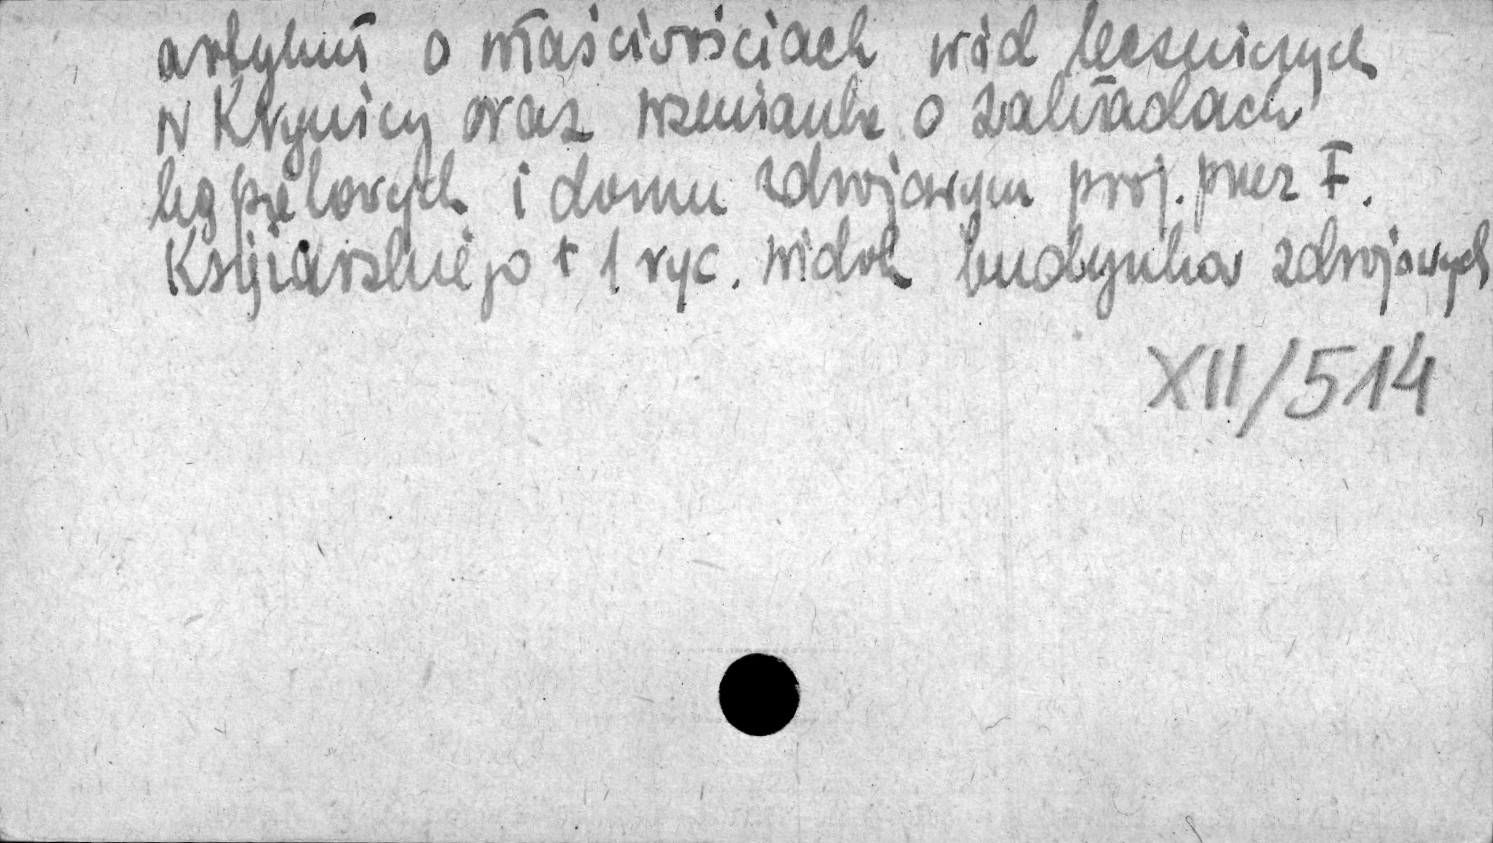 artykuł o właściwościach wód leczniczych
w Krynicy oraz wzmianka o zakładach
kąpielowych i domu zdrojowym proj. przez F.
Księżarskiego + 1 ryc. widok budynków zdrojowych
XII/514